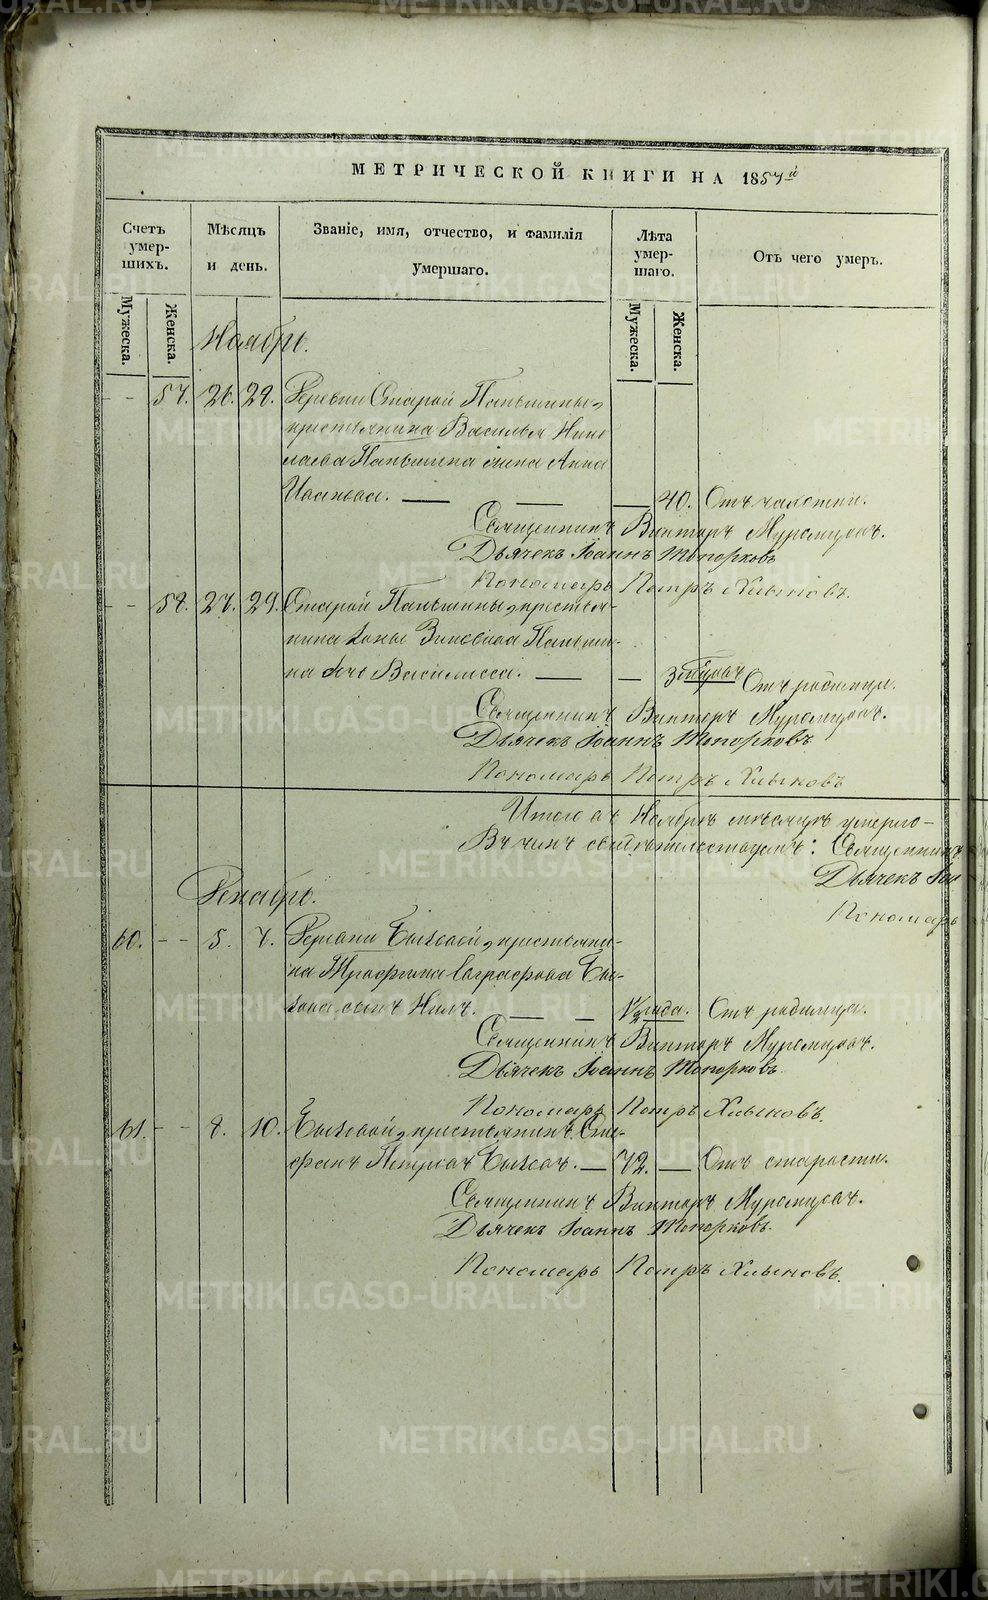 МЕТРИЧЕСКОЙ КНИГИ НА 1857й
Счетъ умер-шихъ.
Мѣсяцъ и день.
Званіе, имя, отчество, и фамилія умершаго.
Лѣта умер-шаго.
Отъ чего умеръ.
Мужеска.
Женска.
Мужеска.
Женска.
Ноябрь.
- - 57. 26. 28. Деревни Старой Паньшины,
крестьянина Василья Нико
лаева Паньшина жена Анна
Иванова. — — — 40. Отъ чахотки.
Священникъ Викторъ Муромцовъ.
Дьячекъ Іоаннъ Топорковъ
Пономарь Петръ Хлыновъ.
- - 58. 27. 29. Старой Паньшины, крестья-
нина Зиновіева Паньши-
на дчь Василисса. — — Отъ родимца.
Священникъ Викторъ Муромцовъ.
Дьячекъ Іоаннъ Топорковъ
Пономарь Петръ Хлыновъ
Итого въ Ноябрѣ мѣсяцѣ умерло-
Въ чемъ свидѣтельствуемъ: Священникъ
Дьячекъ Іоа
Пономарь
Декабрь.
60. - - 5. 7. Деревни Быковой, крестьяни-
на Трофима Евграфова Бы-
кова сынъ Нилъ. — — 1/2 года. Отъ родимца.
Священникъ Викторъ Муромцовъ.
Дьячекъ Іоаннъ Топорковъ
Пономарь Петръ Хлыновъ.
61. - - 8. 10. Быковой, крестьянинъ Сте-
фанъ Петровъ Быковъ. — 72. — Отъ старости.
Священникъ Викторъ Муромцовъ.
Дьячекъ Іоаннъ Топорковъ.
Пономарь Петръ Хлыновъ.
METRIKI.GASO-URAL.RU